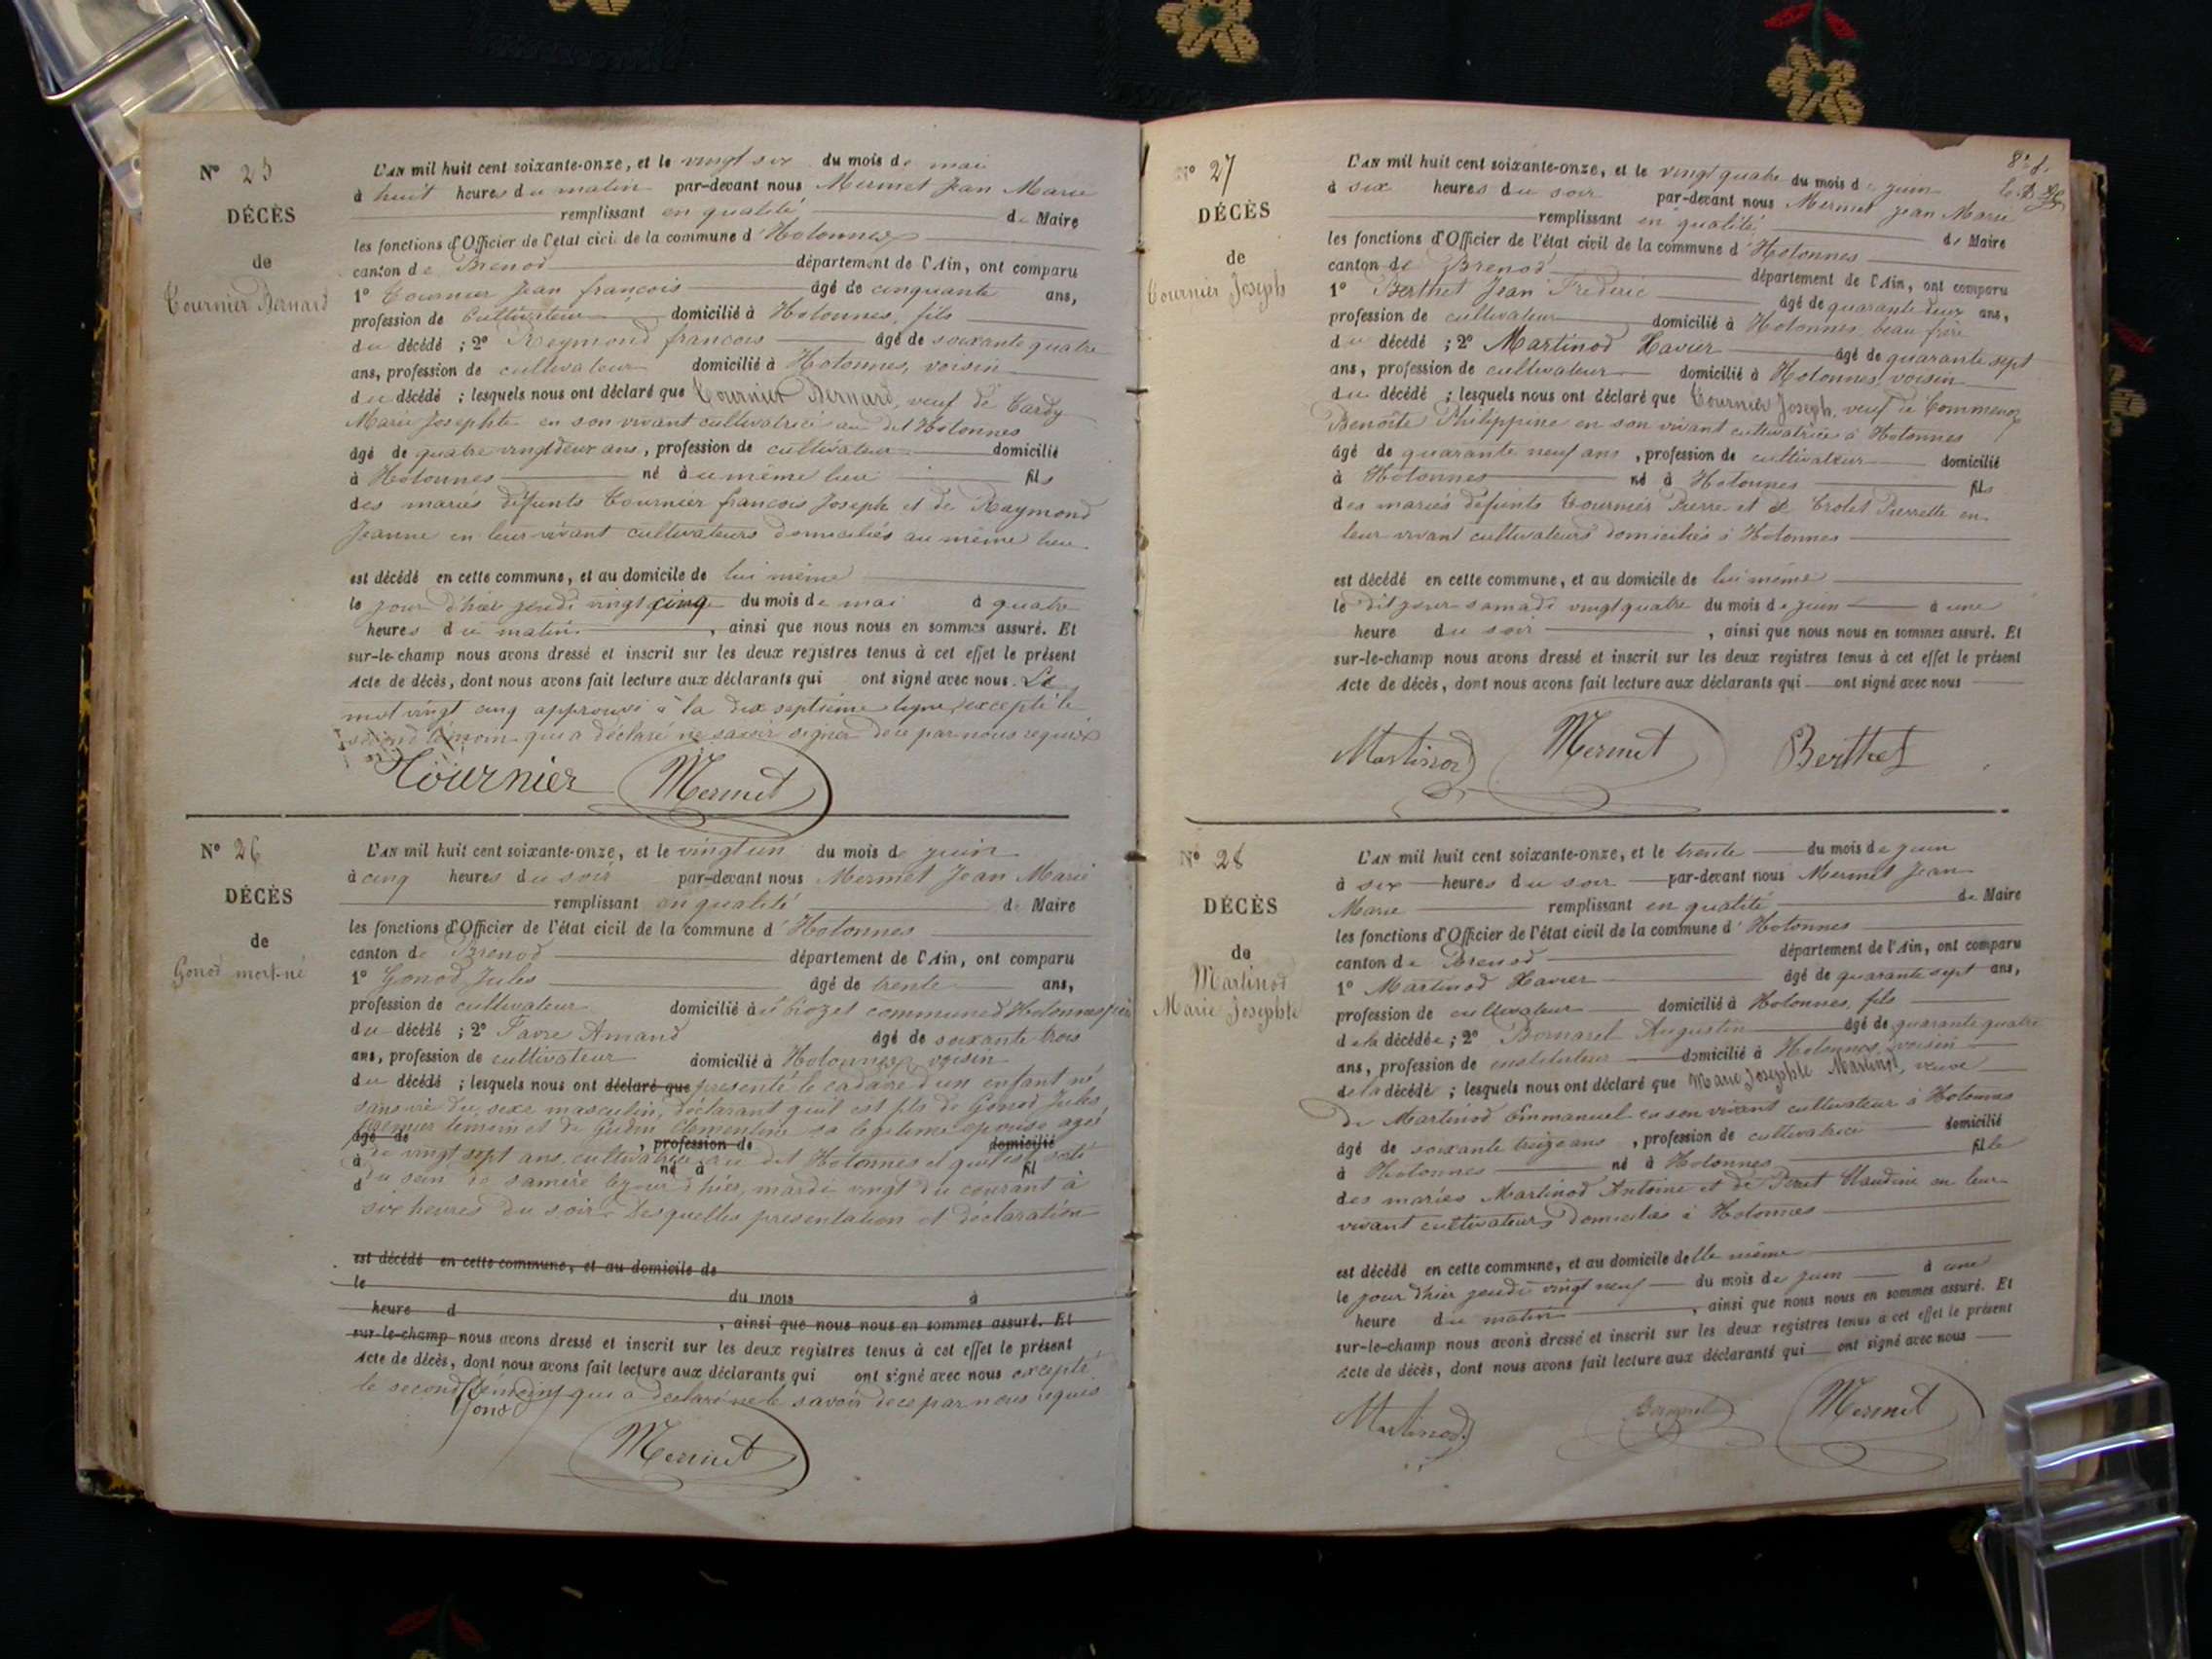 N° 25
DÉCÈS
de
Tournier Bernard
L'AN mil huit cent soixante-onze, et le vingt six du mois de mai
à huit heures du matin par-devant nous Mermet Jean Marie
remplissant en qualité de Maire
les fonctions d'Officier de l'état civil de la commune d'Hotonnes
canton de Brenod département de l'Ain, ont comparu
1° Tournier Jean françois âgé de cinquante ans,
profession de Cultivateur domicilié à Hotonnes, fils
du décédé ; 2° Reymond françois âgé de soixante quatre
ans, profession de cultivateur domicilié à Hotonnes, voisin
du décédé ; lesquels nous ont déclaré que Tournier Bernard, veuf de Tardy
Marie Josephte en son vivant cultivatrice au dit Hotonnes
âgé de quatre vingt deux ans, profession de cultivateur domicilié
à Hotonnes né au même lieu fils
des mariés défunts Tournier françois Joseph et de Raymond
Jeanne en leur vivant cultivateurs domiciliés au même lieu
est décédé en cette commune, et au domicile de lui même
le jour d'hier jeudi vingt cinq du mois de mai à quatre
heures du matin, ainsi que nous nous en sommes assuré. Et
sur-le-champ nous avons dressé et inscrit sur les deux registres tenus à cet effet le présent
Acte de décès, dont nous avons fait lecture aux déclarants qui ont signé avec nous. Le
mot vingt cinq approuvé à la dix septième ligne, excepté le
second témoin qui a déclaré ne savoir signer de ce par nous requis
Tournier Mermet
N° 26
DÉCÈS
de
Gonod mort-né
L'AN mil huit cent soixante-onze, et le vingt un du mois de juin
à cinq heures du soir par-devant nous Mermet Jean Marie
remplissant en qualité de Maire
les fonctions d'Officier de l'état civil de la commune d'Hotonnes
canton de Brénod département de l'Ain, ont comparu
1° Gonod Jules âgé de trente ans,
profession de cultivateur domicilié à commune d'Hotonnes père
du décédé ; 2° Favre Amand âgé de soixante trois
ans, profession de cultivateur domicilié à Hotonnes, voisin
du décédé ; lesquels nous ont déclaré que présenté le cadavre d'un enfant né
sans vie du sexe masculin, déclarant qu'il est fils de Gonod Jules
premier témoin et de Gudin Clementine sa légitime épouse agée
âgé de , profession de domicilié
de vingt sept ans, cultivatrice au dit Hotonnes et qu'il est sorti
à né à fil
du sein de sa mère le jour d'hier, mardi vingt du courant à
d
six heures du soir. Desquelles présentation et déclaration
est décédé en cette commune, et au domicile de
le du mois à
heure d , ainsi que nous nous en sommes assuré. Et
sur-le-champ nous avons dressé et inscrit sur les deux registres tenus à cet effet le présent
Acte de décès, dont nous avons fait lecture aux déclarants qui ont signé avec nous excepté
le second témoin qui a déclaré ne le savoir de ce par nous requis
Gonod
Mermet
N° 27
DÉCÈS
de
Tournier Joseph
8e f.
L'AN mil huit cent soixante-onze, et le vingt quatre du mois de juin
à six heures du soir par-devant nous Mermet Jean Marie
remplissant en qualité de Maire
les fonctions d'Officier de l'état civil de la commune d'Hotonnes
canton de Brenod département de l'Ain, ont comparu
1° Berthet Jean Frederic âgé de quarante deux ans,
profession de cultivateur domicilié à Hotonnes, beau frère
du décédé ; 2° Martinod Xavier âgé de quarante sept
ans, profession de cultivateur domicilié à Hotonnes, voisin
du décédé ; lesquels nous ont déclaré que Tournier Joseph, veuf de
Benoîte Philippine en son vivant cultivatrice à Hotonnes
âgé de quarante neuf ans, profession de cultivateur domicilié
à Hotonnes né à Hotonnes fils
des mariés défunts Tournier Pierre et de Trolet Pierrette en
leur vivant cultivateurs domiciliés à Hotonnes
est décédé en cette commune, et au domicile de lui même
le dit jour samedi vingt quatre du mois de juin à une
heure du soir, ainsi que nous nous en sommes assuré. Et
sur-le-champ nous avons dressé et inscrit sur les deux registres tenus à cet effet le présent
Acte de décès, dont nous avons fait lecture aux déclarants qui ont signé avec nous
Martinod Mermet Berthet
N° 28
DÉCÈS
de
Martinod
Marie Josephte
L'AN mil huit cent soixante-onze, et le trente du mois de juin
à six heures du soir par-devant nous Mermet Jean
Marie remplissant en qualité de Maire
les fonctions d'Officier de l'état civil de la commune d'Hotonnes
canton de Brenod département de l'Ain, ont comparu
1° Martinod Xavier âgé de quarante sept ans,
profession de cultivateur domicilié à Hotonnes, fils
de la décédée ; 2° Bornarel Augustin âgé de quarante quatre
ans, profession de instituteur domicilié à Hotonnes, voisin
de la décédé ; lesquels nous ont déclaré que Marie Josephte Martinod, veuve
de Martinod Emmanuel en son vivant cultivateur à Hotonnes
âgé de soixante treize ans, profession de cultivatrice domicilié
à Hotonnes né à Hotonnes fille
des mariés Martinod Antoine et de Perret Claudine en leur
vivant cultivateurs domiciliés à Hotonnes
est décédé en cette commune, et au domicile delle même
le jour d'hier jeudi vingt neuf du mois de juin à une
heure du matin, ainsi que nous nous en sommes assuré. Et
sur-le-champ nous avons dressé et inscrit sur les deux registres tenus à cet effet le présent
Acte de décès, dont nous avons fait lecture aux déclarants qui ont signé avec nous
Martinod Bornarel Mermet